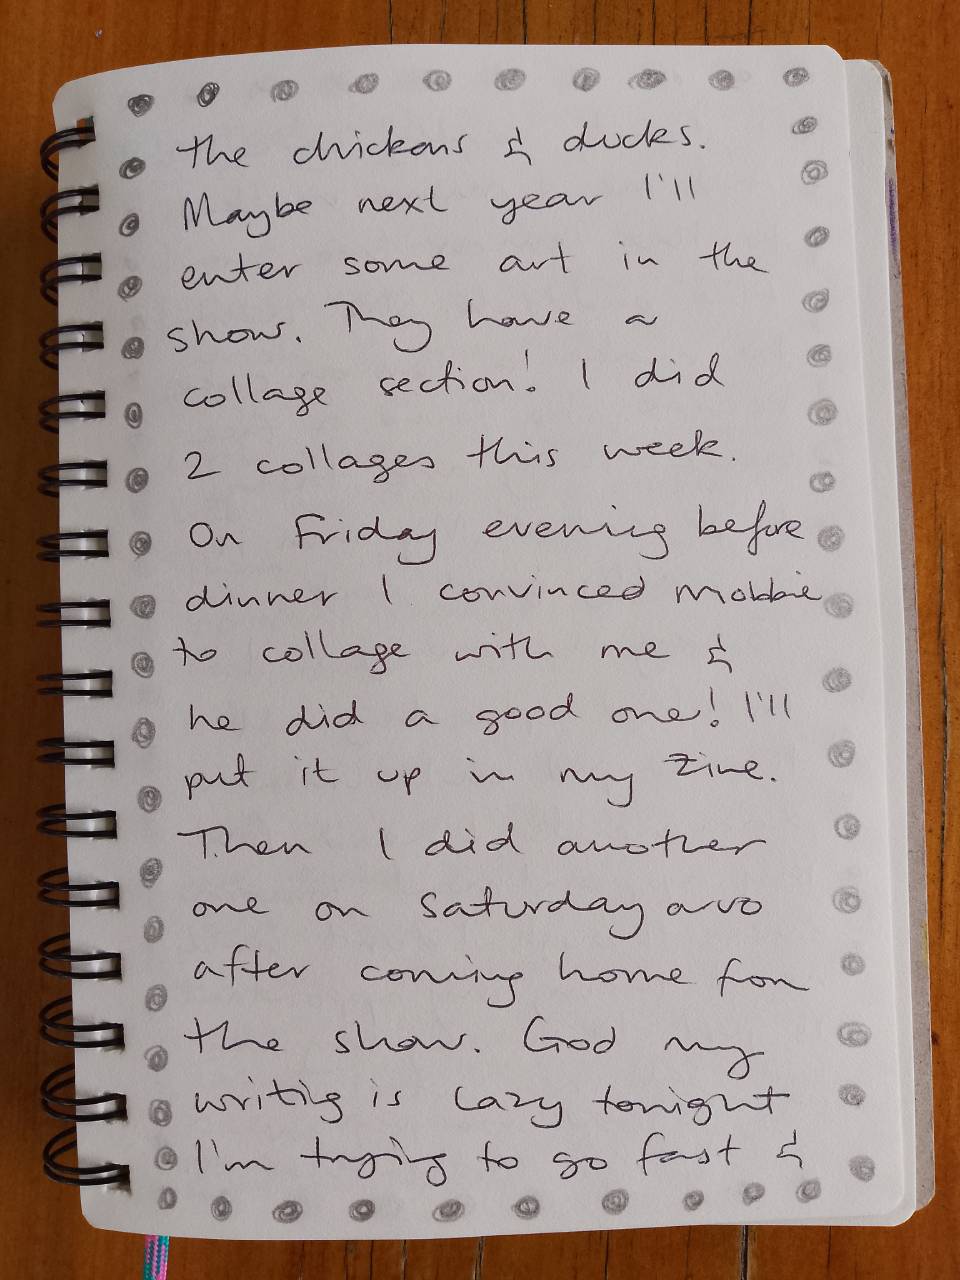 the chickens & ducks.
Maybe next year I'll
enter some art in the
show. They have a
collage section! I did
2 collages this week.
On Friday evening before
dinner I convinced
to collage with me &
he did a good one! I'll
put it up in my zine.
Then I did another
one on Saturday avo
after coming home from
the show. God my
writing is lazy tonight
I'm trying to go fast &